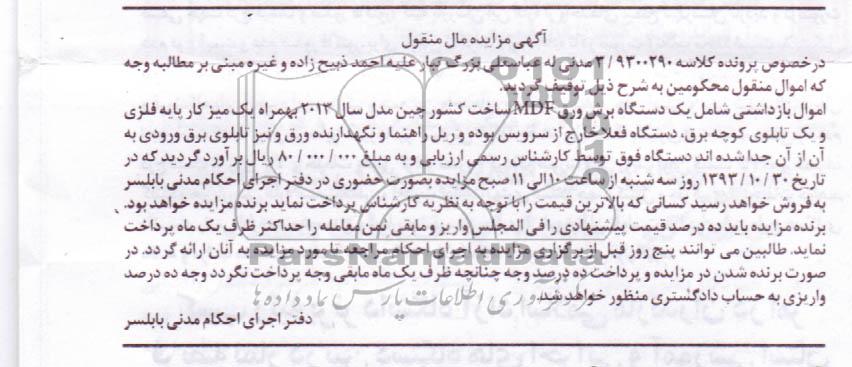 آگهی مزایده مال منقول
درخصوص پرونده کلاسه ۹۳۰۰۲۹۰ / ۳ مدنی له عباسعلی بزرگ تبار علیه احمد ذبیح زاده و غیره مبنی بر مطالبه وجه
که اموال منقول محکومین به شرح ذیل توقیف گردید.
اموال بازداشتی شامل یک دستگاه برش ورق MDF ساخت کشور چین مدل سال ۲۰۱۳ بهمراه یک میز کار پایه فلزی
و یک تابلوی کوچه برق، دستگاه فعلا خارج از سرویس بوده و ریل راهنما و نگهدارنده ورق و نیز تابلوی برق ورودی به
آن از آن جدا شده اند دستگاه فوق توسط کارشناس رسمی ارزیابی و به مبلغ ۰۰۰ / ۰۰۰ / ۸۰ ریال برآورد گردید که در
تاریخ ۳۰ / ۱۰ / ۱۳۹۳ روز سه شنبه از ساعت ۱۰ الی ۱۱ صبح مزایده بصورت حضوری در دفتر اجرای احکام مدنی بابلسر
به فروش خواهد رسید کسانی که بالاترین قیمت را با توجه به نظریه کارشناس پرداخت نماید برنده مزایده خواهد بود.
برنده مزایده باید ده درصد قیمت پیشنهادی را فی المجلس واریز و مابقی ثمن معامله را حداکثر ظرف یک ماه پرداخت
نماید. طالبین می توانند پنج روز قبل از برگزاری مزایده به اجرای احکام مراجعه تا مورد مزایده به آنان ارائه گردد. در
صورت برنده شدن در مزایده و پرداخت ده درصد وجه چنانچه ظرف یک ماه مابقی وجه پرداخت نگردد وجه ده درصد
واریزی به حساب دادگستری منظور خواهد شد.
دفتر اجرای احکام مدنی بابلسر
ParsNamadData
اطلاعات پارس نماد داده ها